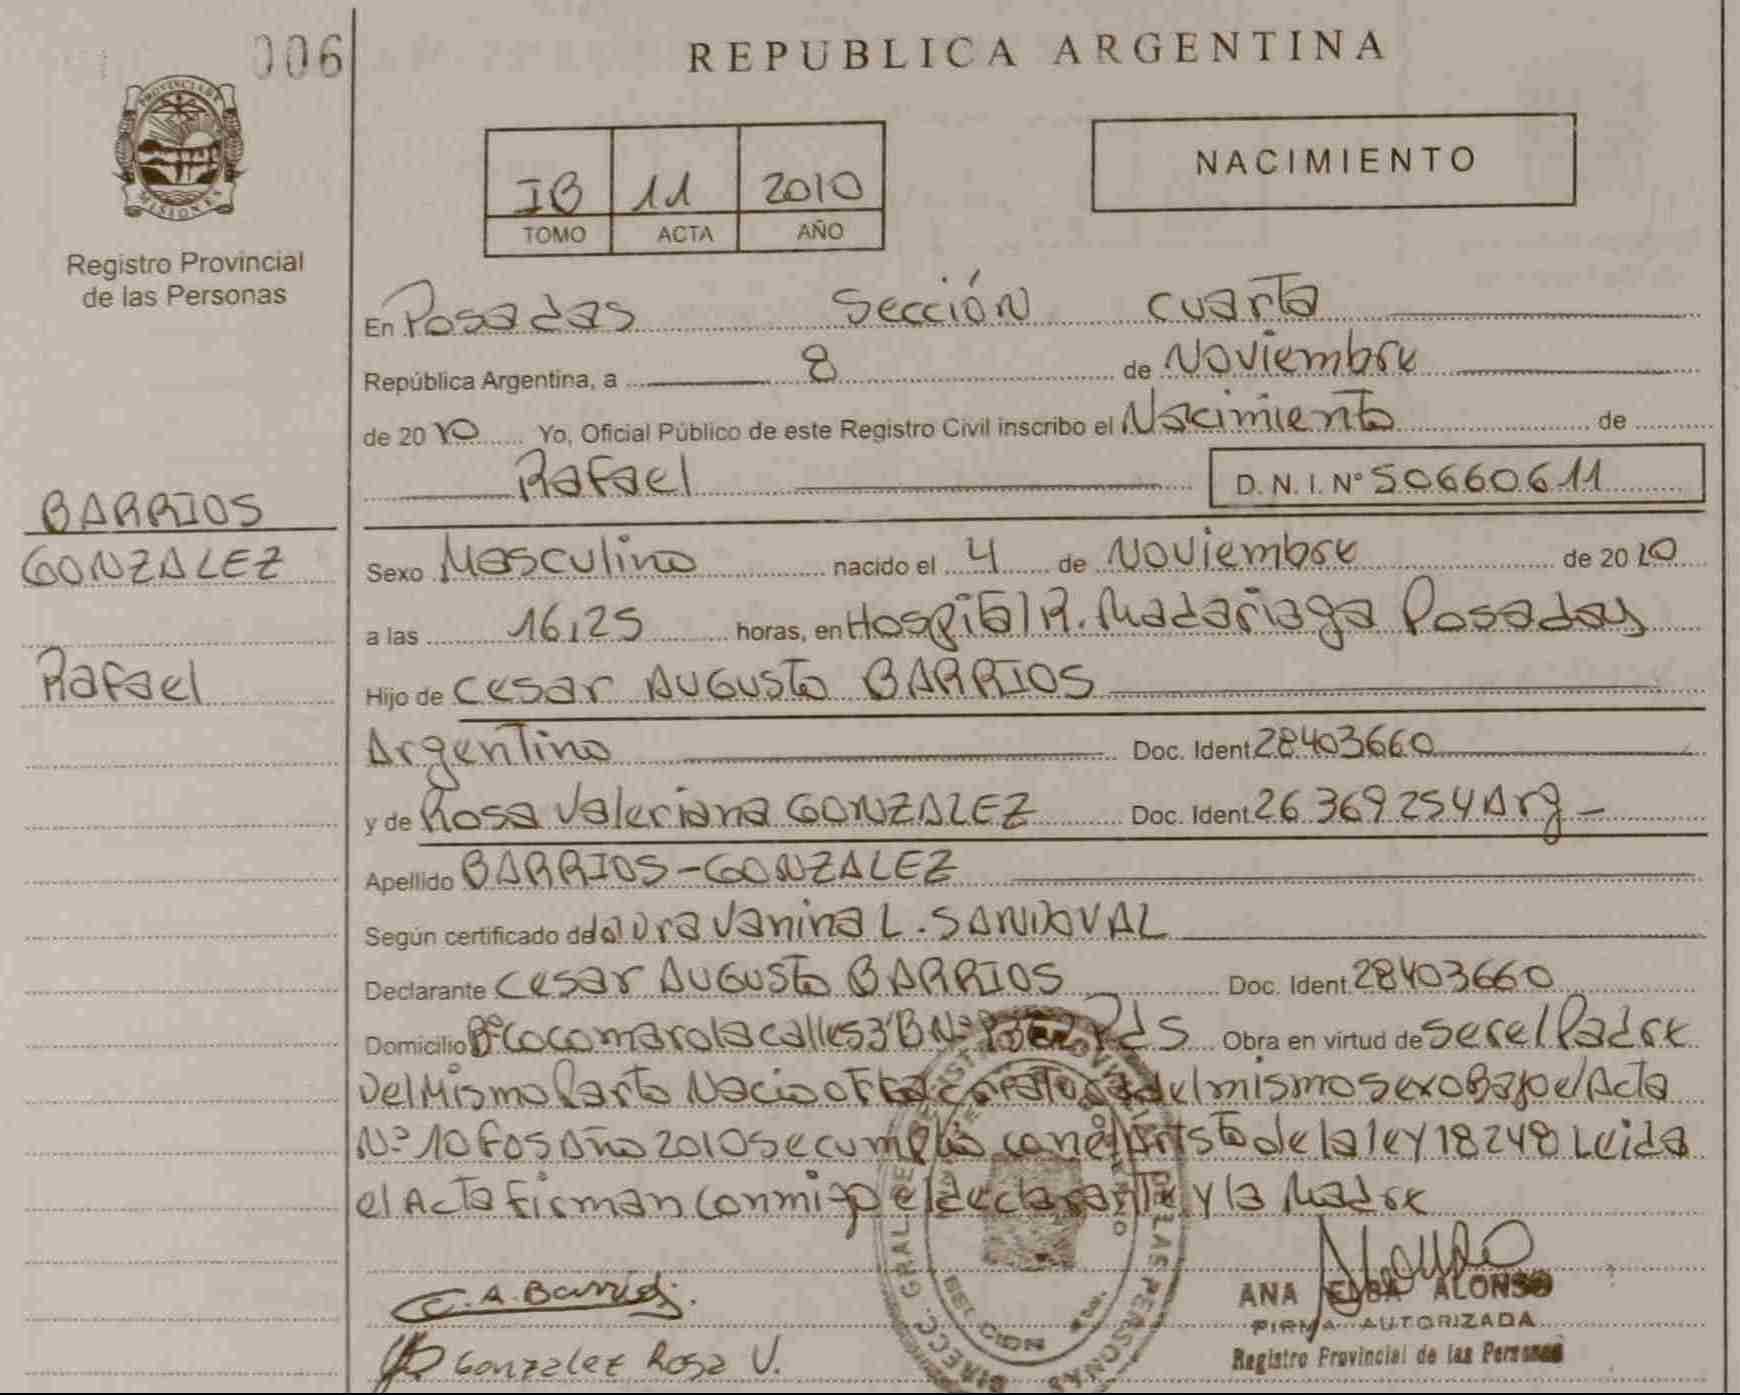 006
REPUBLICA ARGENTINA
PROVINCIA DE
MISIONES
Registro Provincial
de las Personas
IB 11 2010
TOMO ACTA AÑO
NACIMIENTO
En Posadas Sección cuarta
República Argentina, a 8 de Noviembre
de 2010 Yo, Oficial Público de este Registro Civil inscribo el Nacimiento de
Rafael D. N. I. Nº 50660611
BARRIOS
GONZALEZ
Rafael
Sexo Masculino nacido el 4 de Noviembre de 2010
a las 16,25 horas, en Hospital R. Madariaga Posadas
Hijo de Cesar Augusto BARRIOS
Argentino Doc. Ident. 28403660
y de Rosa Valeriana GONZALEZ Doc. Ident. 26369254 Arg -
Apellido BARRIOS-GONZALEZ
Según certificado de la Dra Vanina L. SANDOVAL
Declarante Cesar Augusto BARRIOS Doc. Ident. 28403660
Domicilio Bº Cocomarola calle 53 "B" Nº Pds Obra en virtud de ser el Padre
Del Mismo Parto Nacio otra criatura del mismo sexo Bajo el Acta
Nº 10 Fº 5 Año 2010 se cumplio con el Art 5to de la ley 18248 Leida
el Acta firman conmigo el declarante y la Madre
C. A. Barrios.
Gonzalez Rosa V.
ANA ELBA ALONSO
FIRMA AUTORIZADA
Registro Provincial de las Personas
DIRECC. GRAL. DE REGISTRO PROVINCIAL DE LAS PERSONAS